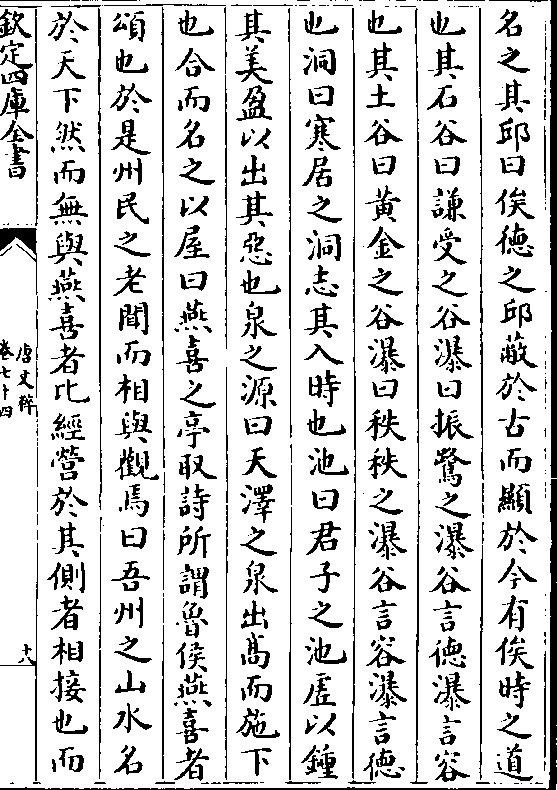 名之其邱曰俟徳之邱蔽於古而顯於今有俟時之道
也其石谷曰謙受之谷瀑曰振鷺之瀑谷言徳瀑言容
也其土谷曰黄金之谷瀑曰秩秩之瀑谷言容瀑言徳
也洞曰寒居之洞志其入時也池曰君子之池虛以鍾
其美盈以出其惡也泉之源曰天澤之泉出髙而施下
也合而名之以屋曰燕喜之亭取詩所謂魯侯燕喜者
頌也於是州民之老聞而相與觀焉曰吾州之山水名
於天下然而無與燕喜者比經營於其側者相接也而
欽定四庫全書
唐文粹
卷七十四
十八